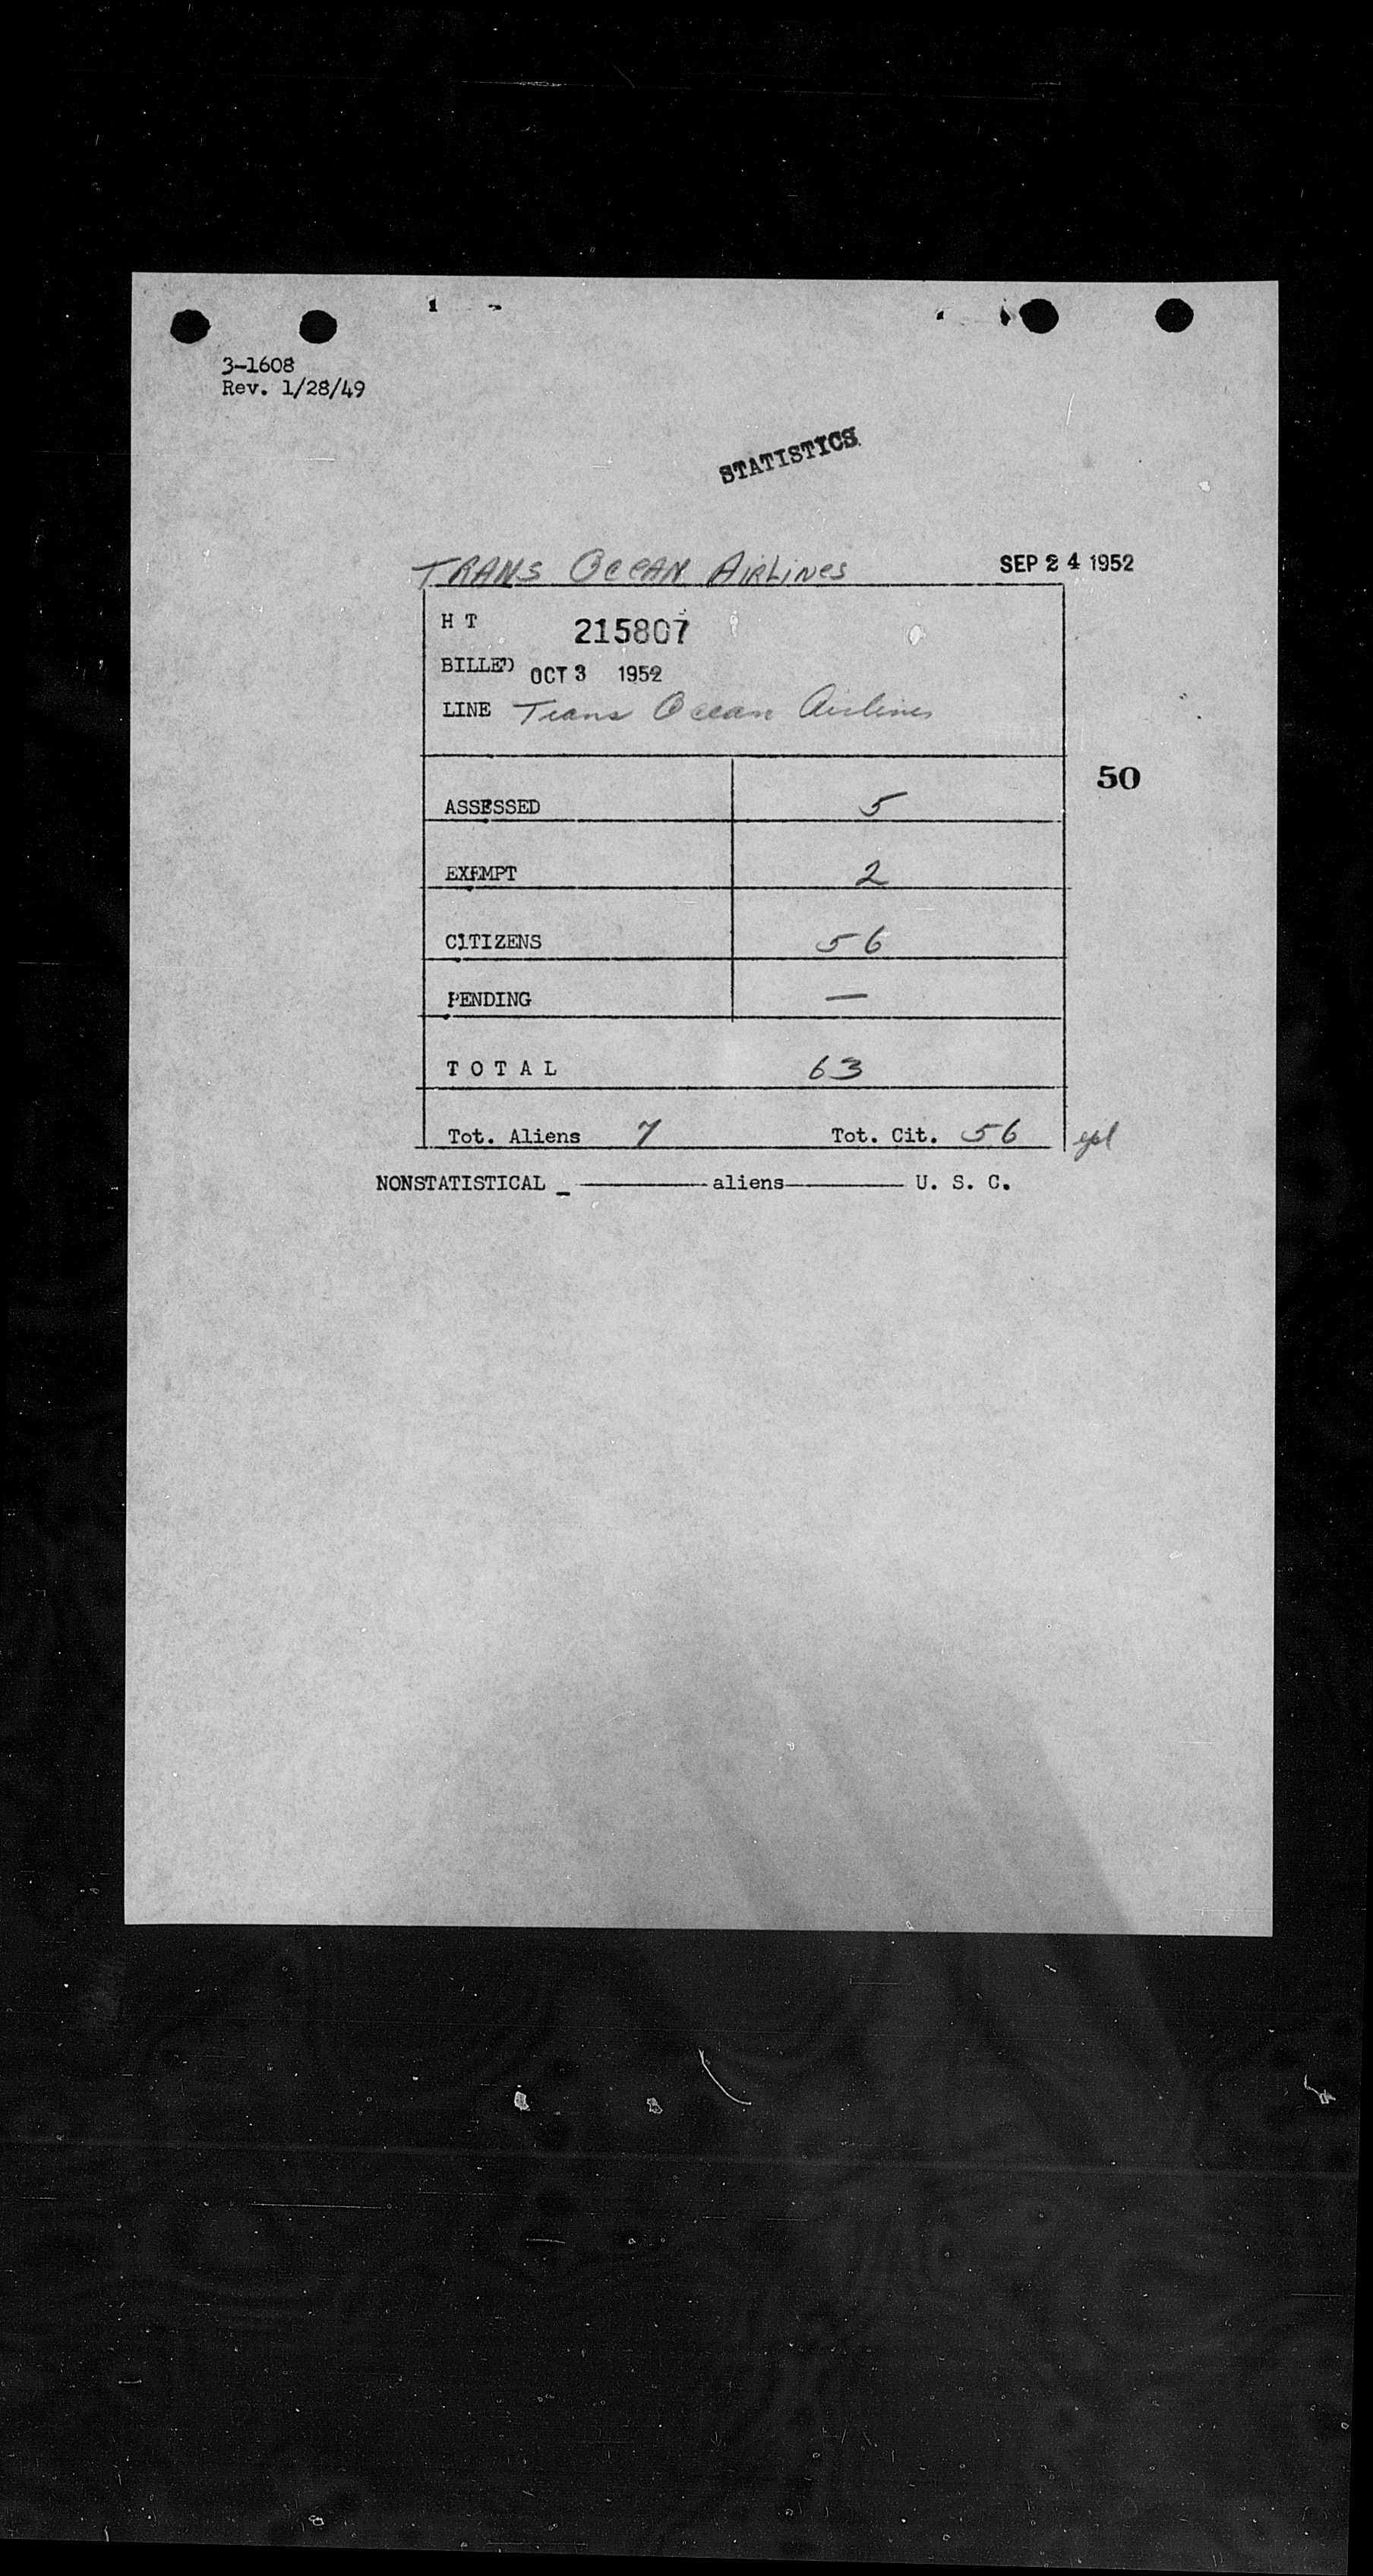 3-1608
Rev. 1/28/49
STATISTICS
TRANS OCEAN AIRLINES SEP 24 1952
H T 215807
BILLED OCT 3 1952
LINE Trans Ocean Airlines
50
ASSESSED 5
EXEMPT 2
CITIZENS 56
PENDING —
T O T A L 63
Tot. Aliens 7 Tot. Cit. 56
NONSTATISTICAL _ ——— aliens ——— U. S. C.